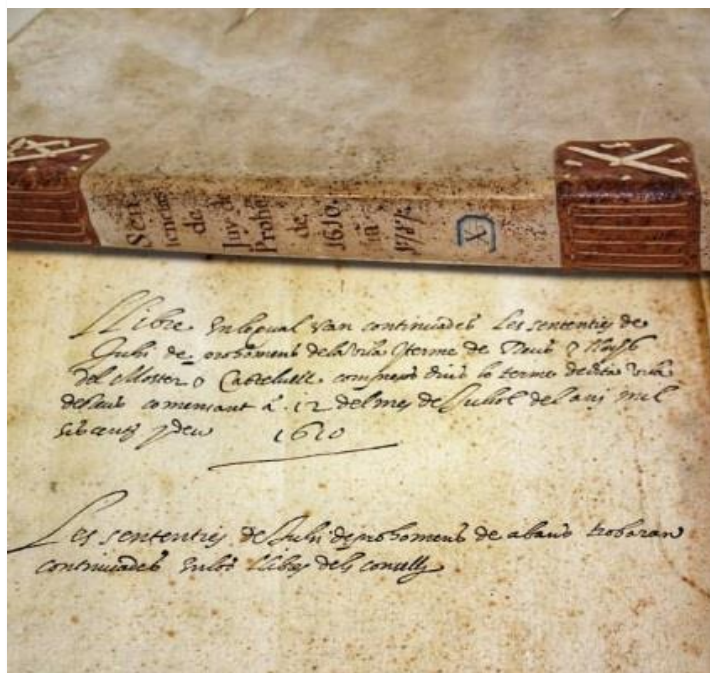 Sen
tencies
de
Juy de
Proho
de
1610.
fin
X
Llibre en loqual van continuades les sententies de
Juhi de prohomens dela vila y terme de Reus y
del Moster y Castelvell compresos dins lo terme de dita vila
de Reus comensant à 12 del mes de Juliol del any mil
siscents y deu 1610
Les sententies de Juhi de prohomens de abans trobaran
continuades en los llibres dels consells